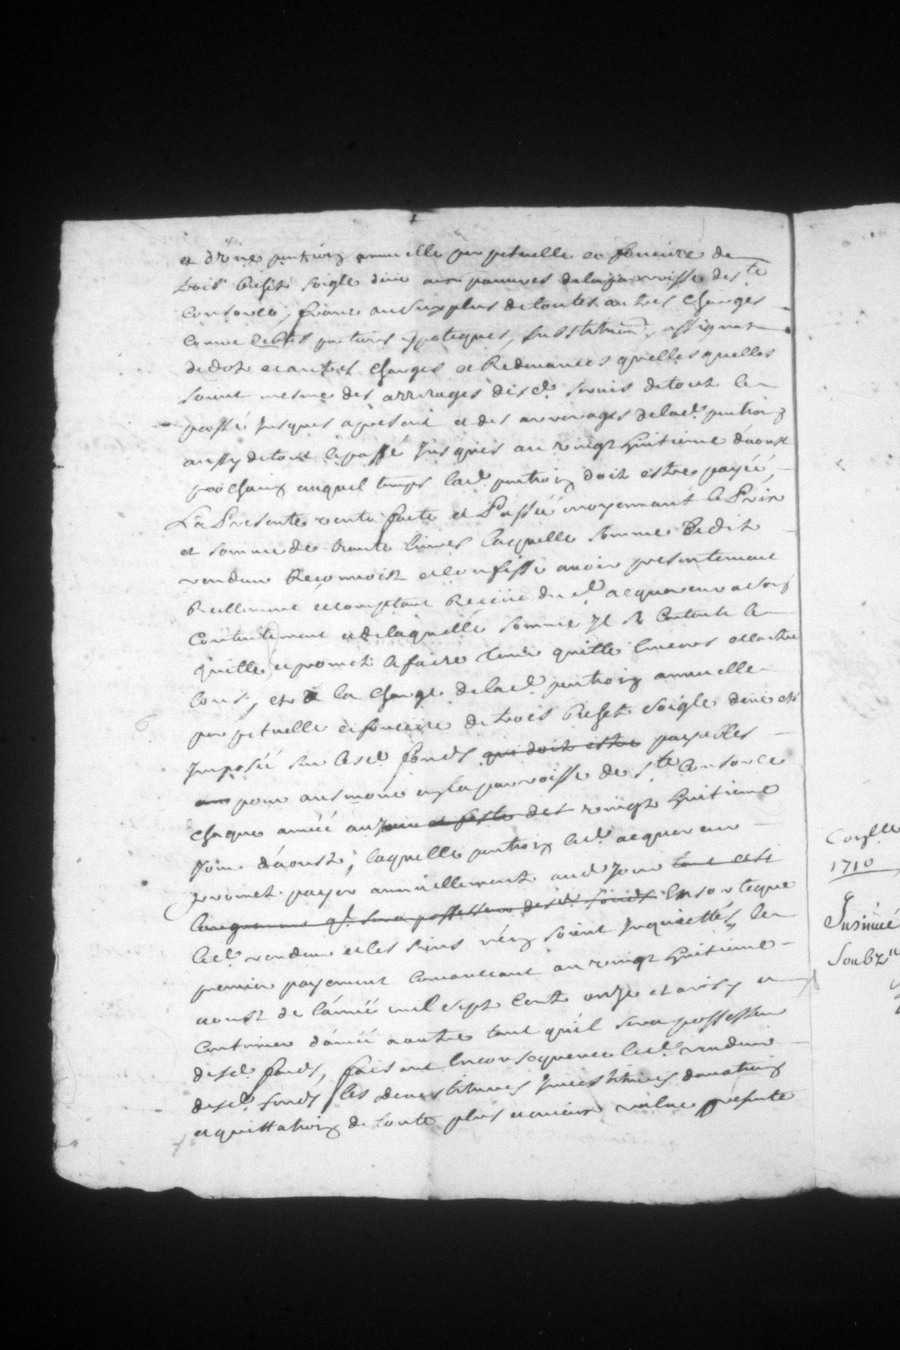 et d'une pention annuelle perpetuelle et fonciere de
trois bichets soigle deüe aux pauvres de la parroisse de s.te
Consorce, franc au surplus de toutes autres charges
comme debtes pentions ypoteques, substitutions, assignat
de dot et autres charges et Redevances quelles quelles
soient mesme des arrerages des.d. servis de tout le
passé jusques a present et des arrerages de lad. pention
aussy de tout le passé jusques au vingt huitieme d'aoust
prochain auquel temps lad. pention doit estre payée,
La Presente vente faite et Passée moyennant le Prix
et somme de trante livres laquelle somme led.it
vendeur Reconnoist et confesse avoir presentement
Reellement et comptant Receüe dud. acquereur a son
contentement et de laquelle somme Il se contente le
quitte et promet le faire tenir quitte envers et contre
tous, et a la charge de lad. pention annuelle
perpetuelle et fonciere de trois bichets soigle deüe et
Imposée sur lesd. fonds qui doit estre payables
pour ausmone en la parroisse de s.te Consorce
chaque année au jour et feste des vingt huitieme
jour d'aoust, laquelle pention led. acquereur
promet payer annuellement aud. jour tant et si
longuement q. sera possesseur desd. fonds en sorte que
led. vendeur et les siens n'en soient Inquiettés, le
premier payement commencant au vingt huitieme
aoust de l'année mil sept cent onze et ainsy a
continuer d'année a autre tant qu'il sera possesseur
desd. fonds, faisant en consequence led. vendeur
desd. fonds les devestitures Investitures donation
et quittation de toute plus et mieux value presente
1710
Insinué